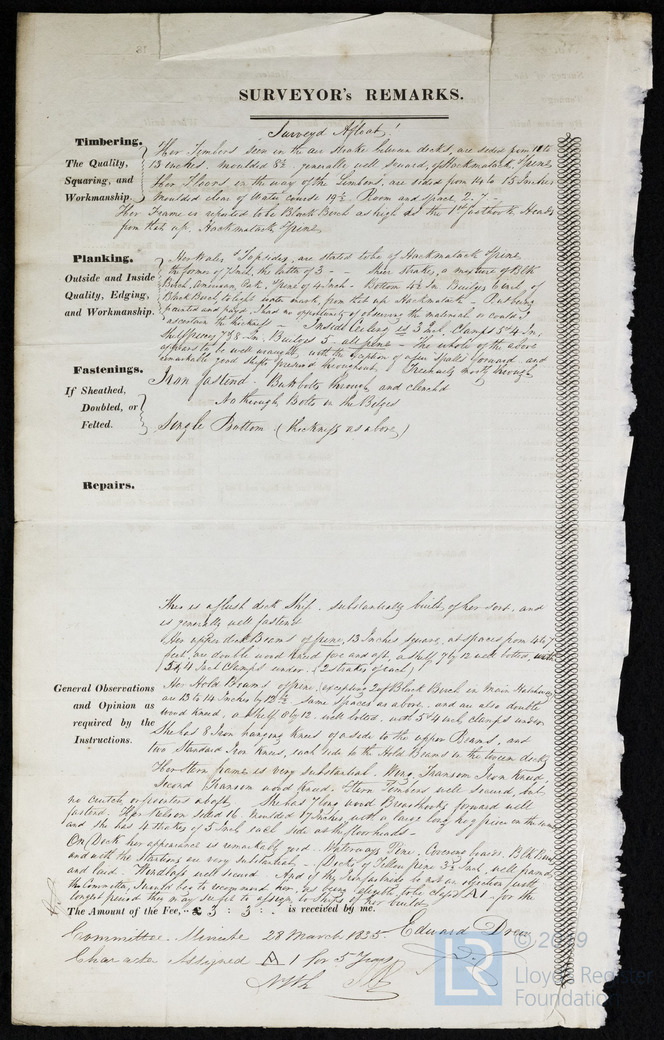 SURVEYOR's REMARKS.
Surveyd Afloat
Timbering.
The Quality,
Squaring, and
Workmanship.
Her Timbers seen in the air strake between decks, are sided from 10 to
13 inches. moulded 8½ generally well squared, of Hackmatack, & pine
Her Floors in the way of the Limbers, are sided from 14 to 15 Inches
Moulded clear of water course 14½ Room and space 2.7 -
Her Frame is reputed to be Black Birch as high as the 1st foothook Heads
from that up, Hackmatack & pine
Planking.
Outside and Inside
Quality, Edging,
and Workmanship.
Her Wales & Topsides, are stated to be of Hackmatack & pine
the former of 5 Inch, the latter of 3 - Sheer Strakes, a mixture of Blk
Birch, American Oak, & pine of 4 Inch - Bottom 4½ In Budges
Black Birch, to light water mark, from that up Hackmatack - But being
painted and payd, I had no opportunity of observing the material or could I
ascertain the thickness - Inside Ceiling is 3 Inch, Clamps 5 & 4 In,
7 & 8 In. 5 - all pine - The whole of the above
appears to be well wrought, with the exception of a few forward and
remarkable good shifts preserved throughout, Treenails mostly through
Fastenings.
If Sheathed,
Doubled, or
Felted.
Iron fastend. Butt bolts through and clenchd
No through Bolts in the Bilges
Single Bottom (thickness as above)
Repairs.
General Observations
and Opinion as
required by the
Instructions.
This is a flush deck Ship. substantially built, of her sort, and
is generally well fastend
Her upper deck Beams of pine, 13 Inches square, at spaces from 4 to 7
feet, are double wood kneed fore and aft, a shelf 7 by 12 well bolted, with
3 & 4 Inch Clamps under. (2 strakes of each)
Her Hold Beams of pine (excepting 2 of Black Birch in Main Hatchway)
are 13 to 14 Inches by 12½ same spaces as above, and are also double
wood kneed, a Shelf by 12. well bolted, with 5 & 4 inch clamps under
She has 8 Iron hanging knees of a side to the upper Beams, and
two Standard Iron knees, each side to the Hold Beams in the tween decks
Her Stern frame is very substantial. Wing Transom Iron kneed,
Second Transom wood kneed. Stern Timbers well secured, but
no crutch, or pointers abaft. She has 7 long wood Breasthooks forward well
fastend. Her Kelson sided 16. moulded 17 Inches with a large long hog piece on the same
and she has 4 strakes of 5 Inch each side as thro floorheads -
On Deck her appearance is remarkably good. Waterways Pine, Covering boards, Blk Birch
and with the Starlings are very substantial - Decks of Yellow pine 3½ Inch, well framed,
and laid. Windlass well secured. And if the Iron fastening be not an objection with
the Committee, I would beg to recommend her, as being eligible to be Classd A1 - for the
longest period they may see fit to assign to Ships of her build
The Amount of the Fee, £ 3 : 3 : . is received by me.
Edward Drew
Committee Minute 28 March 1835
Character Assigned A 1 for 5 Years
© 2019
LR
Lloyd's Register
Foundation